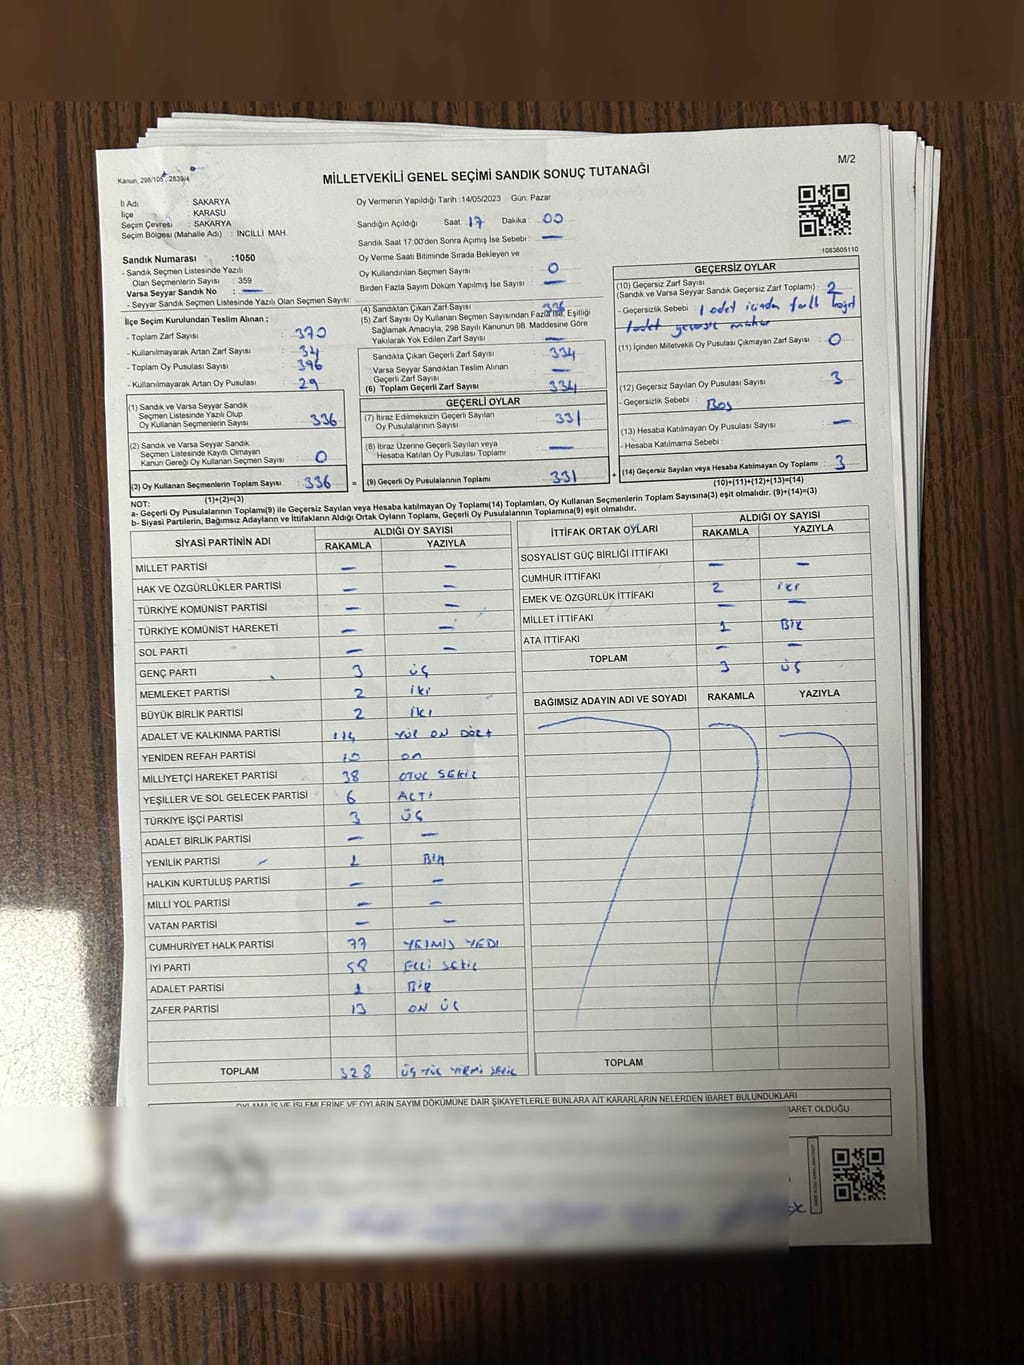 M/2
Kanun, 298/105, 2839/4
MİLLETVEKİLİ GENEL SEÇİMİ SANDIK SONUÇ TUTANAĞI
İl Adı : SAKARYA
İlçe : KARASU
Seçim Çevresi : SAKARYA
Seçim Bölgesi (Mahalle Adı) : İNCİLLİ MAH.
Sandık Numarası :1050
- Sandık Seçmen Listesinde Yazılı
Olan Seçmenlerin Sayısı : 359
Varsa Seyyar Sandık No : —
- Seyyar Sandık Seçmen Listesinde Yazılı Olan Seçmen Sayısı:
İlçe Seçim Kurulundan Teslim Alınan ;
- Toplam Zarf Sayısı : 370
- Kullanılmayarak Artan Zarf Sayısı : 34
- Toplam Oy Pusulası Sayısı : 396
- Kullanılmayarak Artan Oy Pusulası : 29
(1) Sandık ve Varsa Seyyar Sandık
Seçmen Listesinde Yazılı Olup
Oy Kullanan Seçmenlerin Sayısı : 336
(2) Sandık ve Varsa Seyyar Sandık
Seçmen Listesinde Kayıtlı Olmayan
Kanun Gereği Oy Kullanan Seçmen Sayısı : 0
(3) Oy Kullanan Seçmenlerin Toplam Sayısı : 336 =
(1)+(2)=(3)
Oy Vermenin Yapıldığı Tarih :14/05/2023 Gün: Pazar
Sandığın Açıldığı Saat: 17 Dakika : 00
Sandık Saat 17:00'den Sonra Açımış İse Sebebi : —
Oy Verme Saati Bitiminde Sırada Bekleyen ve
Oy Kullandırılan Seçmen Sayısı : 0
Birden Fazla Sayım Dökümü Yapılmış İse Sayısı : —
(4) Sandıktan Çıkan Zarf Sayısı : 336
(5) Zarf Sayısı Oy Kullanan Seçmen Sayısından Fazla İse, Eşitliği
Sağlamak Amacıyla, 298 Sayılı Kanunun 98. Maddesine Göre
Yakılarak Yok Edilen Zarf Sayısı : —
Sandıkta Çıkan Geçerli Zarf Sayısı : 334
Varsa Seyyar Sandıktan Teslim Alınan
Geçerli Zarf Sayısı : —
(6) Toplam Geçerli Zarf Sayısı : 334
GEÇERLİ OYLAR
(7) İtiraz Edilmeksizin Geçerli Sayılan
Oy Pusulalarının Sayısı : 331
(8) İtiraz Üzerine Geçerli Sayılan veya
Hesaba Katılan Oy Pusulası Toplamı : —
(9) Geçerli Oy Pusulalarının Toplamı : 331 +
1083605110
GEÇERSİZ OYLAR
(10) Geçersiz Zarf Sayısı
(Sandık ve Varsa Seyyar Sandık Geçersiz Zarf Toplamı) : 2
- Geçersizlik Sebebi : 1 adet içinden
1 adet
(11) İçinden Milletvekili Oy Pusulası Çıkmayan Zarf Sayısı : 0
(12) Geçersiz Sayılan Oy Pusulası Sayısı : 3
- Geçersizlik Sebebi : Boş
(13) Hesaba Katılmayan Oy Pusulası Sayısı : —
- Hesaba Katılmama Sebebi :
(14) Geçersiz Sayılan veya Hesaba Katılmayan Oy Toplamı : 3
(10)+(11)+(12)+(13)=(14)
NOT:
a- Geçerli Oy Pusulasının Toplamı(9) ile Geçersiz Sayılan veya Hesaba katılmayan Oy Toplamı(14) Toplamları, Oy Kullanan Seçmenlerin Toplam Sayısına(3) eşit olmalıdır. (9)+(14)=(3)
b- Siyasi Partilerin, Bağımsız Adayların ve İttifakların Aldığı Ortak Oyların Toplamı, Geçerli Oy Pusulalarının Toplamına(9) eşit olmalıdır.
SİYASİ PARTİNİN ADI ALDIĞI OY SAYISI
RAKAMLA YAZIYLA
MİLLET PARTİSİ — —
HAK VE ÖZGÜRLÜKLER PARTİSİ — —
TÜRKİYE KOMÜNİST PARTİSİ — —
TÜRKİYE KOMÜNİST HAREKETİ — —
SOL PARTİ — —
GENÇ PARTİ 3 üç
MEMLEKET PARTİSİ 2 iki
BÜYÜK BİRLİK PARTİSİ 2 iki
ADALET VE KALKINMA PARTİSİ 114 YÜZ ON DÖRT
YENİDEN REFAH PARTİSİ 10 on
MİLLİYETÇİ HAREKET PARTİSİ 38 OTUZ SEKİZ
YEŞİLLER VE SOL GELECEK PARTİSİ 6 ALTI
TÜRKİYE İŞÇİ PARTİSİ 3 ÜÇ
ADALET BİRLİK PARTİSİ — —
YENİLİK PARTİSİ 1 Bir
HALKIN KURTULUŞ PARTİSİ — —
MİLLİ YOL PARTİSİ — —
VATAN PARTİSİ — —
CUMHURİYET HALK PARTİSİ 77 YETMİŞ YEDİ
İYİ PARTİ 58 Elli SEKİZ
ADALET PARTİSİ 1 BİR
ZAFER PARTİSİ 13 ON ÜÇ
TOPLAM 328 ÜÇ YÜZ YİRMİ SEKİZ
İTTİFAK ORTAK OYLARI ALDIĞI OY SAYISI
RAKAMLA YAZIYLA
SOSYALİST GÜÇ BİRLİĞİ İTTİFAKI — —
CUMHUR İTTİFAKI 2 iki
EMEK VE ÖZGÜRLÜK İTTİFAKI — —
MİLLET İTTİFAKI 1 BİR
ATA İTTİFAKI — —
TOPLAM 3 ÜÇ
BAĞIMSIZ ADAYIN ADI VE SOYADI RAKAMLA YAZIYLA
TOPLAM
OYLAMA İŞ VE İŞLEMLERİNE VE OYLARIN SAYIM DÖKÜMÜNE DAİR ŞİKAYETLERLE BUNLARA AİT KARARLARIN NELERDEN İBARET BULUNDUKLARI
BARET OLDUĞU